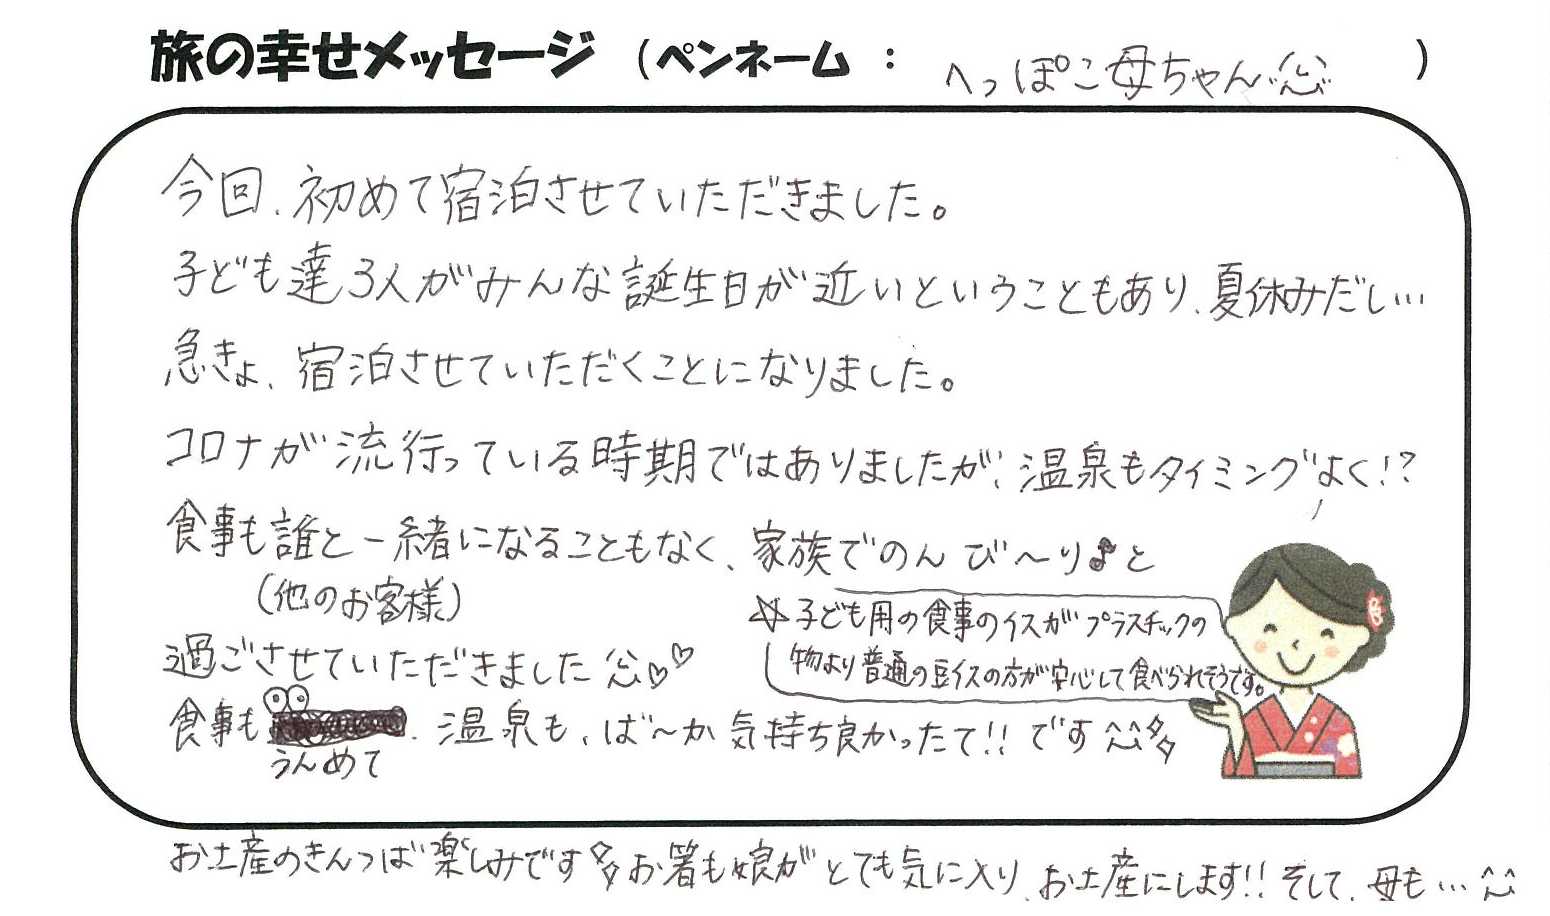 旅の幸せメッセージ (ペンネーム : へっぽこ母ちゃん )
今回、初めて宿泊させていただきました。
子ども達3人がみんな誕生日が近いということもあり、夏休みだし…
急きょ、宿泊させていただくことになりました。
コロナが流行っている時期ではありましたが、温泉もタイミングよく!?
食事も誰と一緒になることもなく、家族でのんび〜り♪と
(他のお客様)
過ごさせていただきました♡♡
☆子ども用の食事のイスがプラスチックの
物より普通の豆イスの方が安心して食べられそうです。
食事も 、温泉も、ば〜か気持ち良かったて!!です
うんめて
お土産のきんつば楽しみです お箸も娘がとても気に入り、お土産にします!!そして、母も…